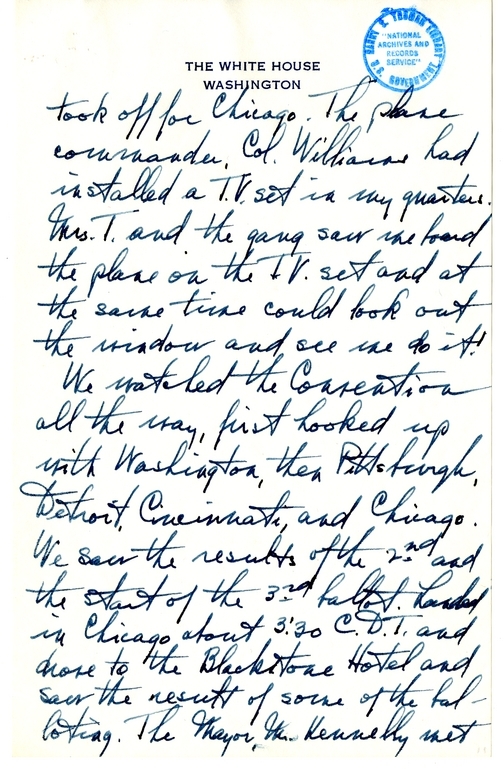 HARRY S. TRUMAN LIBRARY
"NATIONAL
ARCHIVES AND
RECORDS
SERVICE"
U.S. GOVERNMENT
THE WHITE HOUSE
WASHINGTON
took off for Chicago. The plane
commander, Col. Williams had
installed a T.V. set in my quarters.
Mrs. T. and the gang saw me board
the plane on the T.V. set and at
the same time could look out
the window and see me do it!
We watched the Convention
all the way, first hooked up
with Washington, then Pittsburgh,
Detroit, Cincinnati, and Chicago.
We saw the results of the 2nd and
the start of the 3rd ballot. Landed
in Chicago about 3:30 C.D.T. and
drove to the Blackstone Hotel and
saw the result of some of the bal-
loting. The Mayor, Mr. Kennelly met